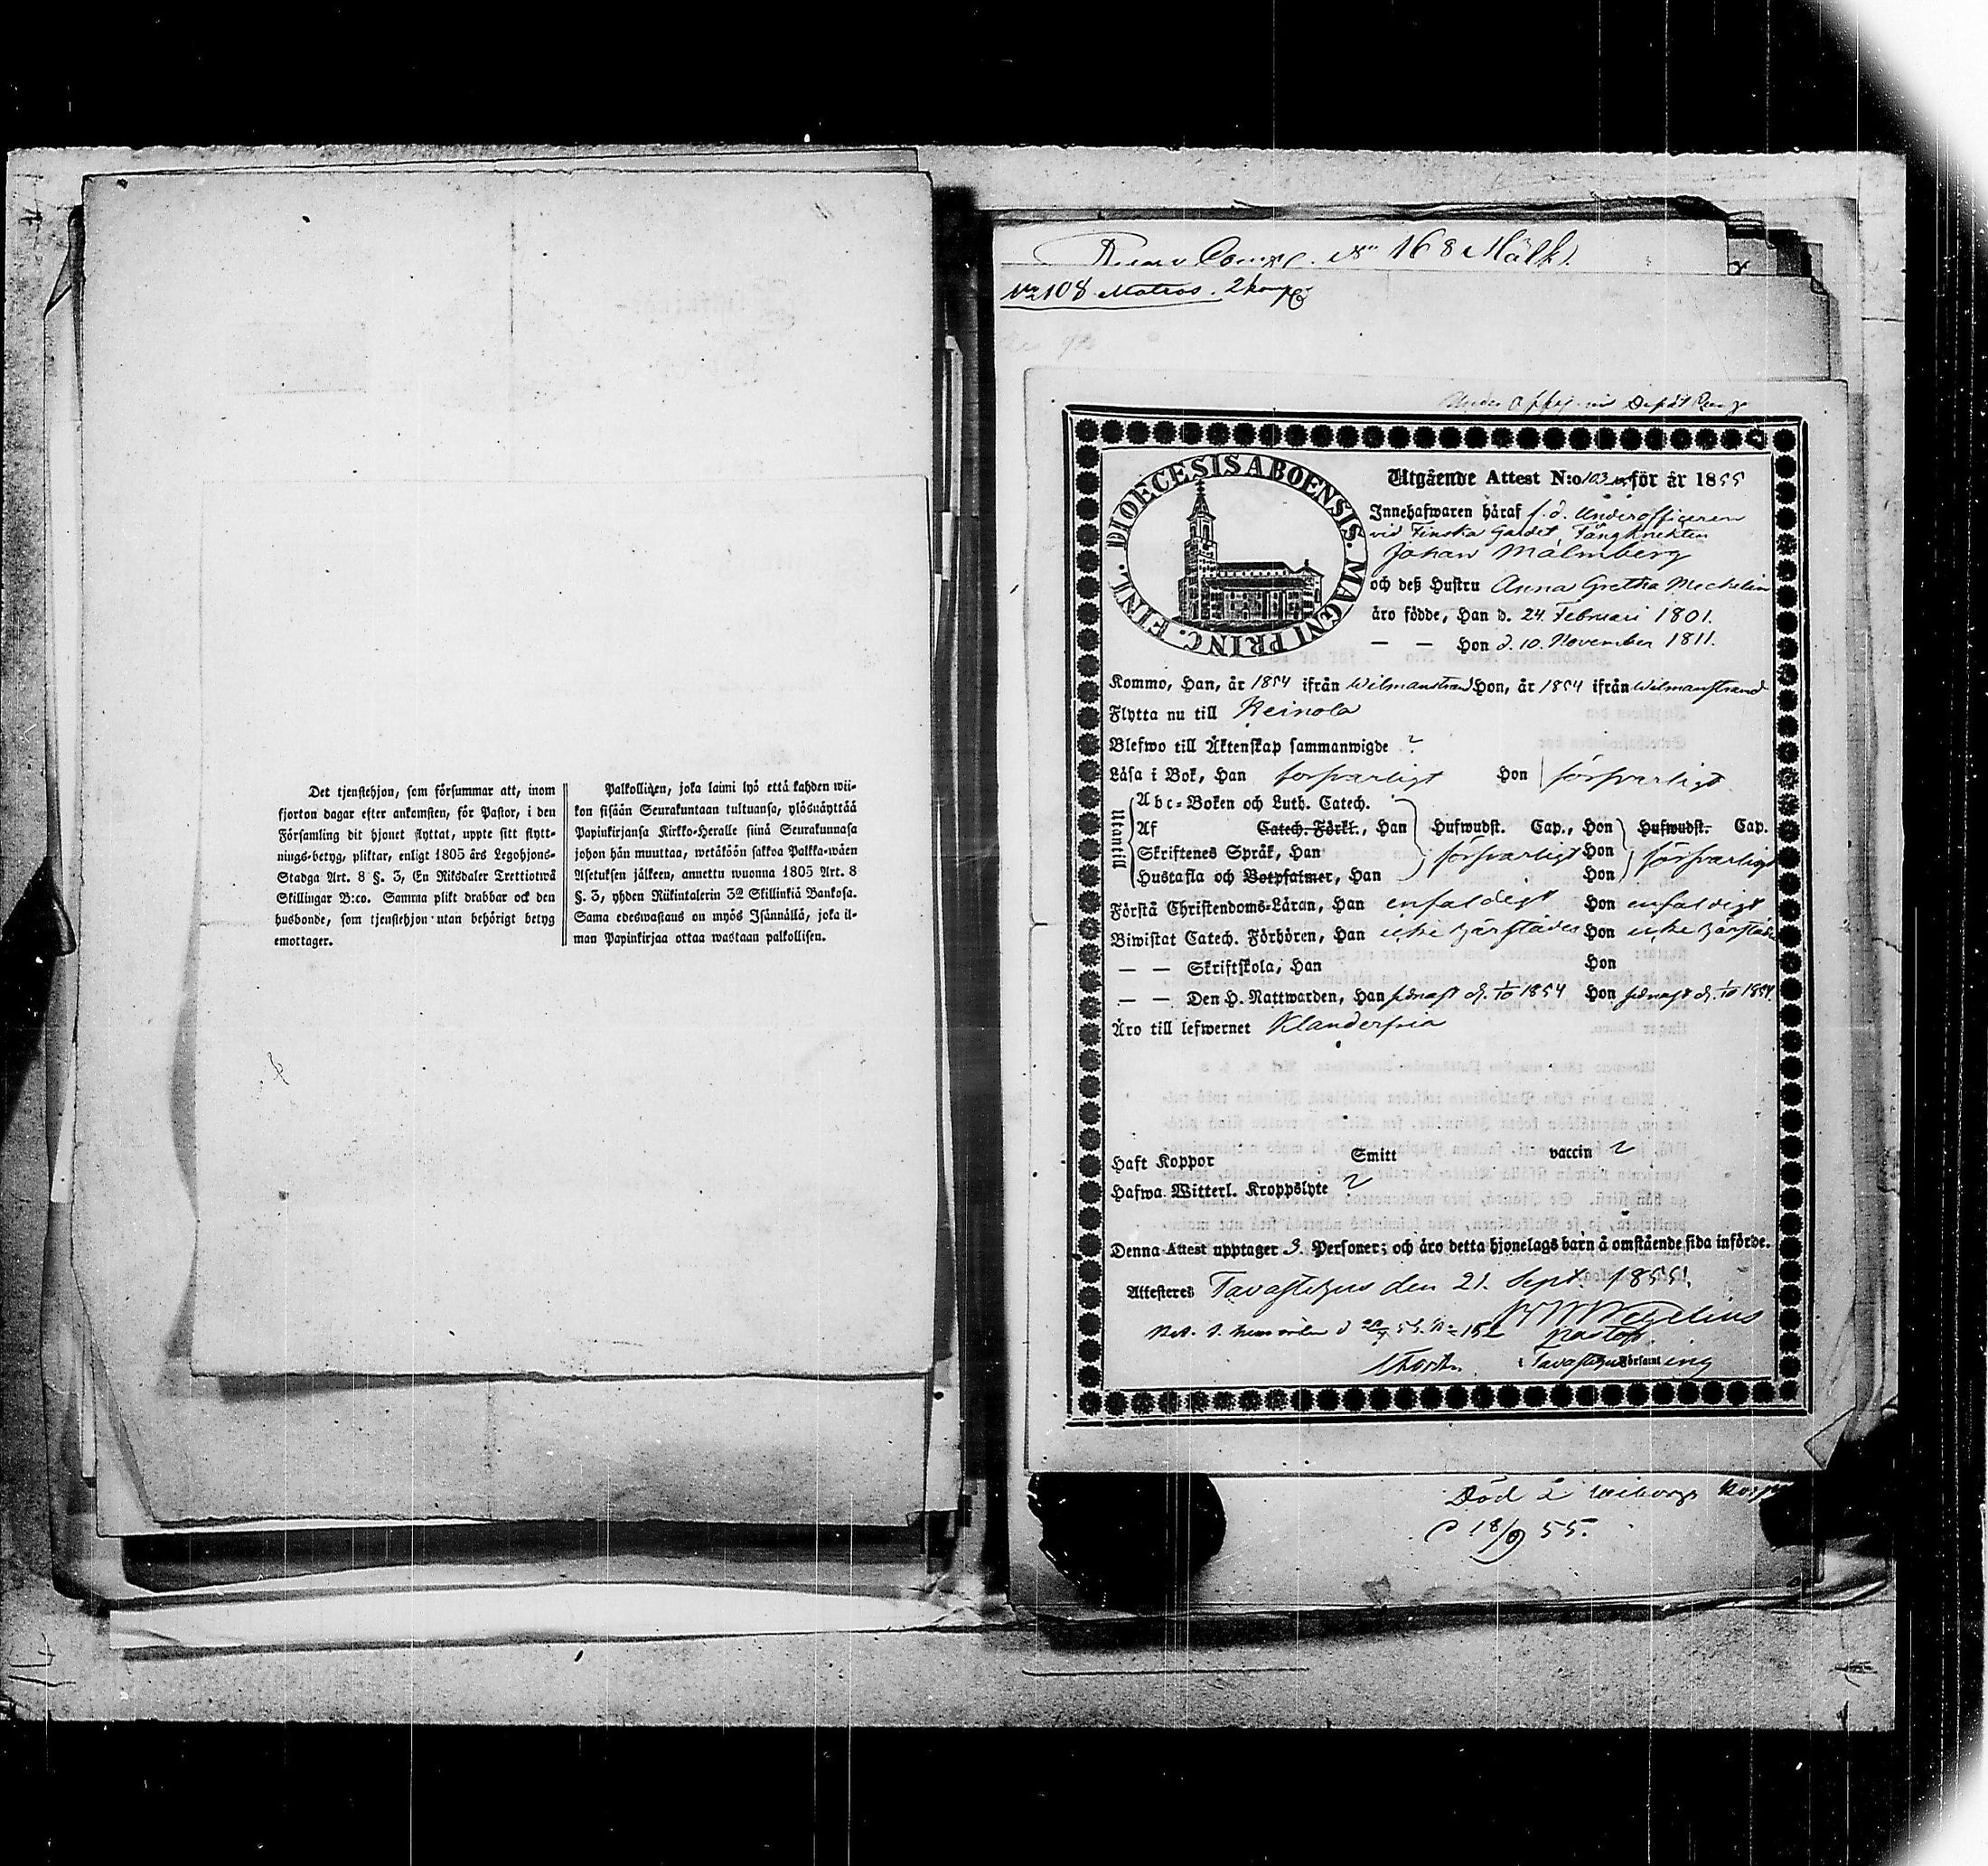 Det tjenstehjon, som försummar att, inom
fjorton dagar efter ankomsten, för Pastor, i den
Församling dit hjonet flyttat, uppte sitt flytt-
nings-betyg, pliktar, enligt 1805 års Legohjons-
Stadga Art. 8 §. 3, En Riksdaler Trettiotwå
Skillingar B:co. Samma plikt drabbar ock den
husbonde, som tjenstehjon utan behörigt betyg
emottager.
Palkollinen, joka laimi lyö että kahden wii-
kon sisään Seurakuntaan tultuansa, ylösnäyttää
Papinkirjansa Kirkko-Heralle siinä Seurakunnasa
johon hän muuttaa, wetäköön sakkoa Palkka-wäen
Asetuksen jälkeen, annettu wuonna 1805 Art. 8
§. 3, yhden Riikintalerin 32 Skillinkiä Bankosa.
Sama edeswastaus on myös Isännällä, joka il-
man Papinkirjaa ottaa wastaan palkollisen.
168
No 108 Matros. 2 komp
DIOECESIS ABOENSIS. MAGNI PRINC. FINL.
Utgående Attest N:o 103 för år 1855
Innehafwaren häraf f.d. Underofficeren
vid Finska Gardet, Fångknekten
Johan Malmberg
och deß Hustru Anna Gretha Mechelin
äro födde, Han d. 24 Februari 1801.
— — Hon d. 10. November 1811.
Kommo, Han, år 1854 ifrån Wilmanstrand Hon, år 1854 ifrån Wilmanstrand
Flytta nu till Heinola
Blefwo till Äktenskap sammanwigde ?
Läsa i Bok, Han försvarligt Hon försvarligt
Utantill
Abc-Boken och Luth. Catech.
Af Catech. Förkl., Han Hufwudst. Cap., Hon Hufwudst. Cap.
Skriftenes Språk, Han försvarligt Hon försvarligt
Hustafla och Botpsalmer, Han Hon
Förstå Christendoms-Läran, Han enfaldigt Hon enfaldigt
Biwistat Catech. Förhören, Han icke härstädes Hon icke härstädes
— — Skriftskola, Han Hon
— — Den H. Nattwarden, Han sednast d. 1/10 1854 Hon sednast d. 1/10 1854
Äro till lefwernet Klanderfria
Haft Koppor Smitt vaccin ?
Hafwa Witterl. Kroppslyte ?
Denna Attest upptager 3. Personer; och äro detta hjonelags barn å omstående sida införde.
Attesteras Tavastehus den 21. Sept. 1855.
Wegelius
Pastor
i Tavastehus Församling
Död i Wiborg
d 18/9 55.